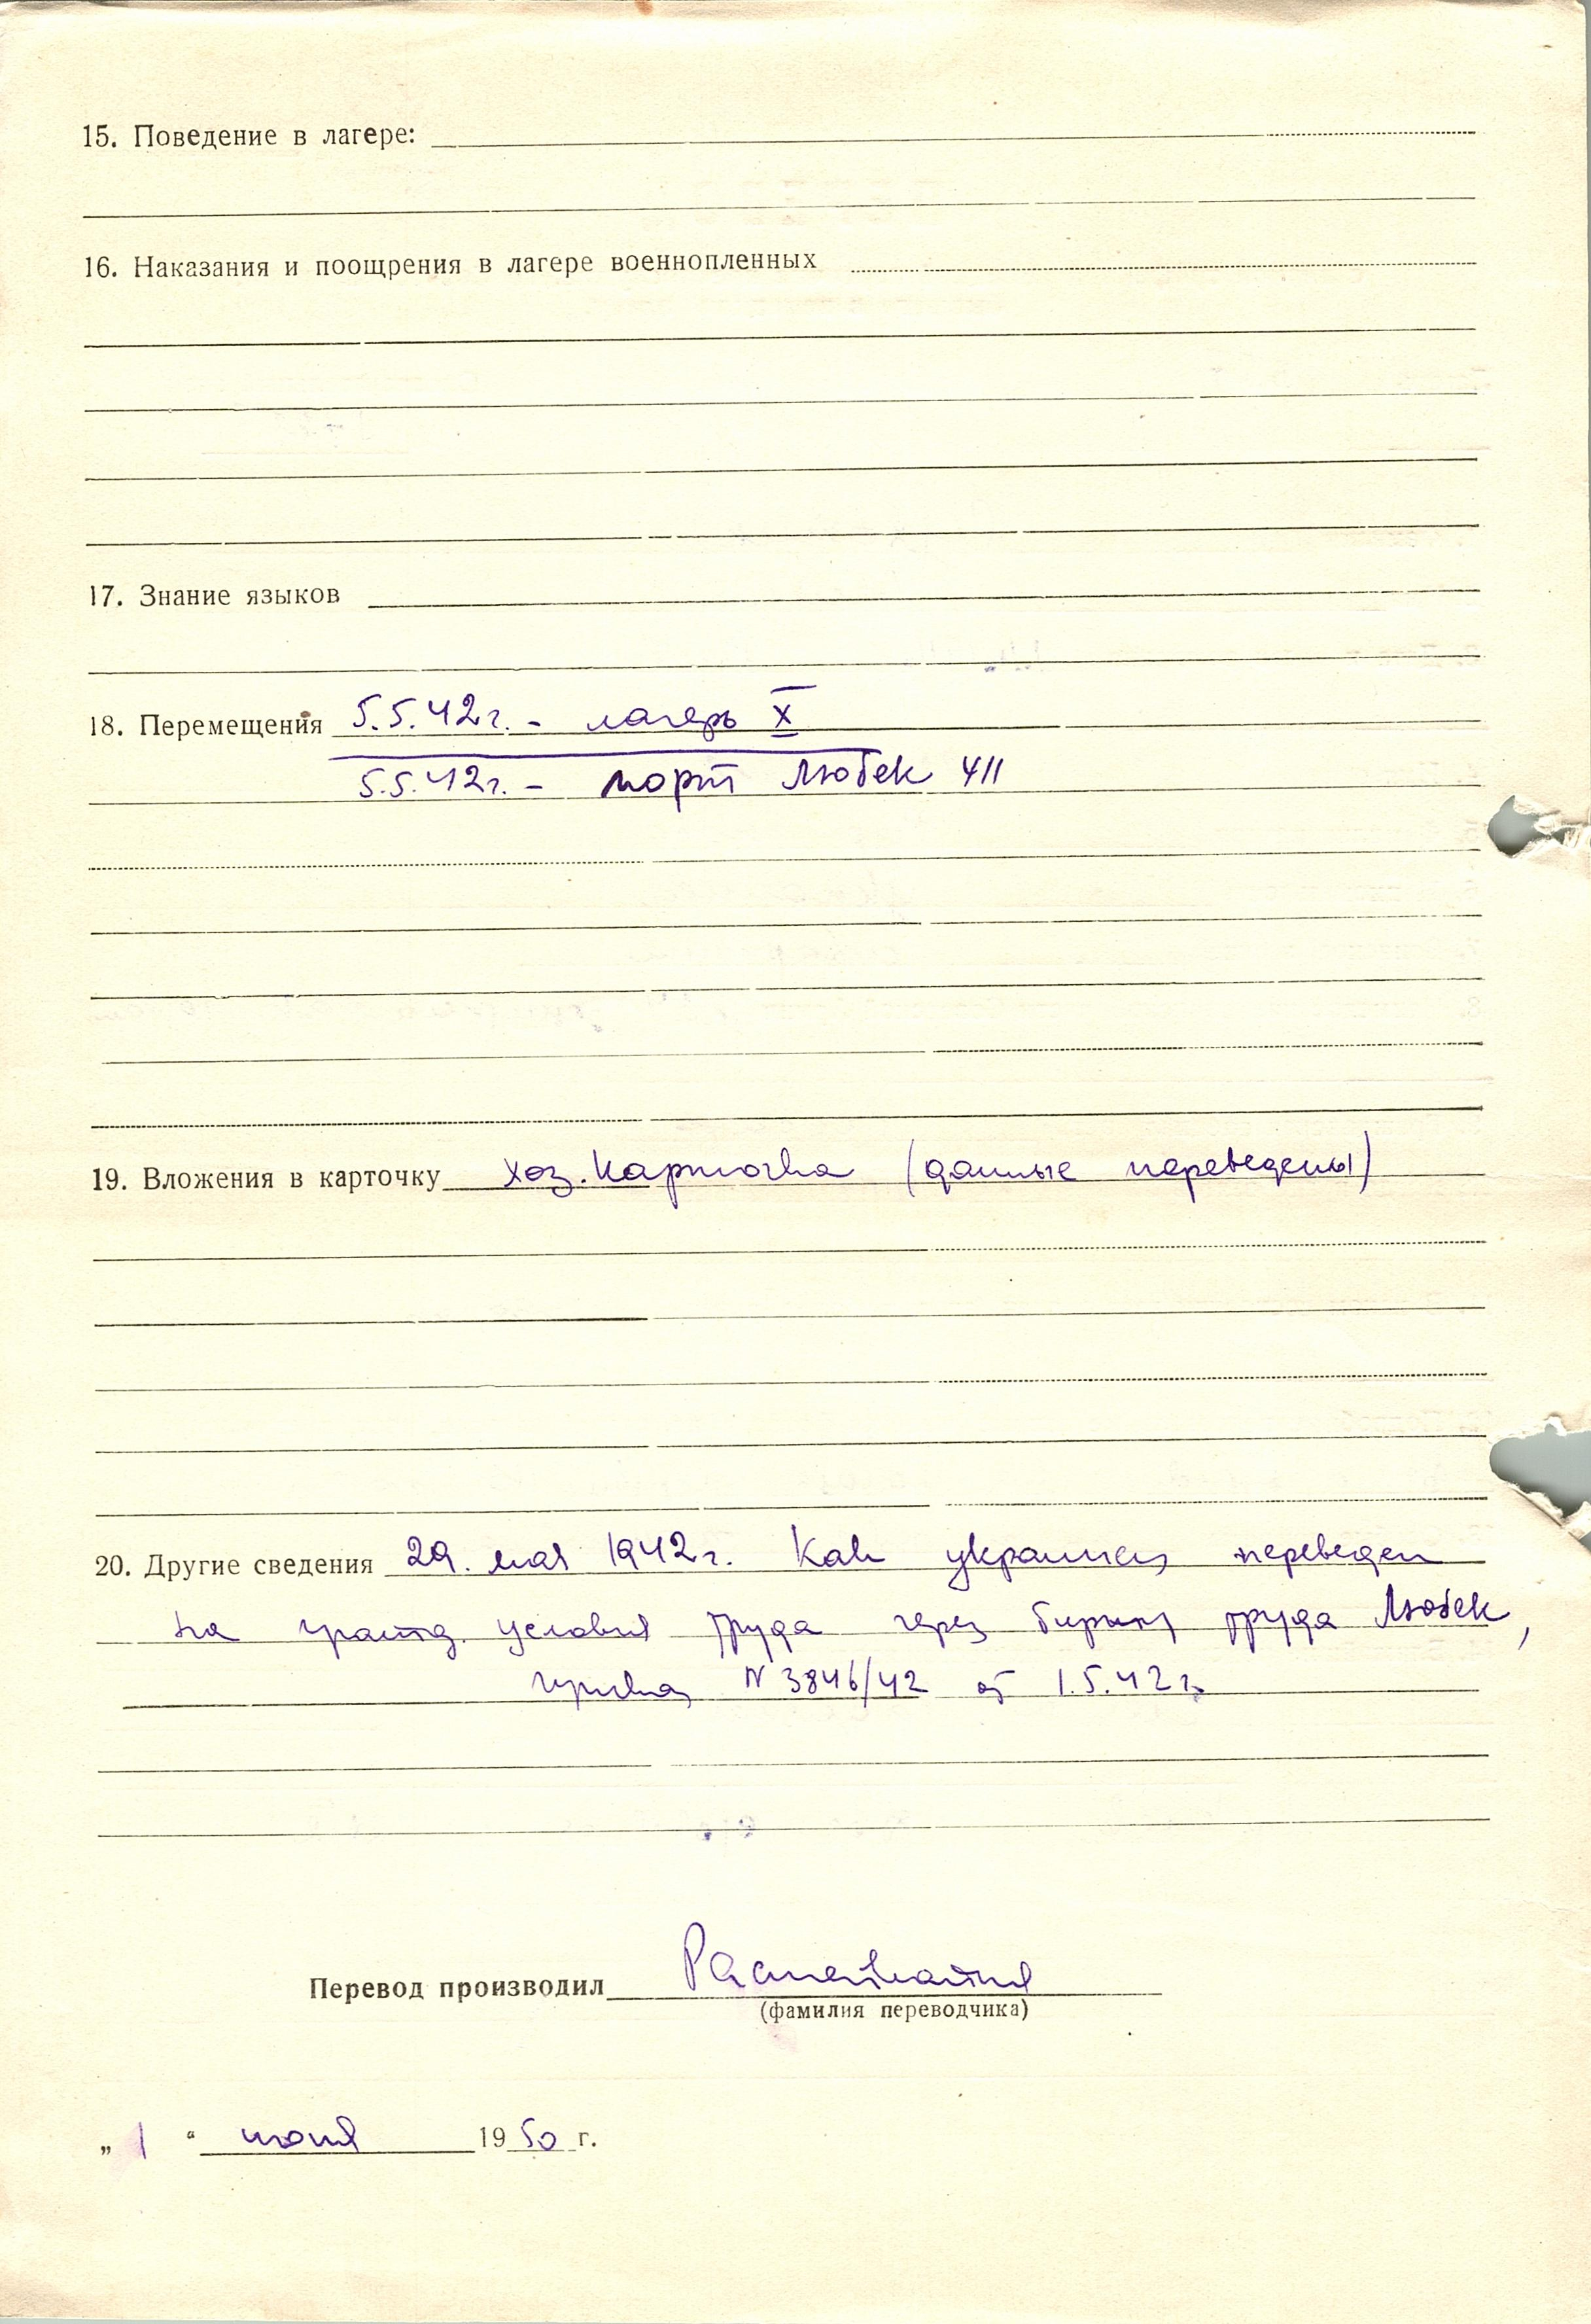 15. Поведение в лагере:
16. Наказания и поощрения в лагере военнопленных
17. Знание языков
18. Перемещения 5.5.42г. - лагерь X
5.5.42г. - порт Любек 411
19. Вложения в карточку хоз. карточка (данные переведены)
20. Другие сведения 29. мая 1942г. Как украинец переведен
на гражд. условия труда через биржу труда Любек,
приказ N 3846/42 от 1.5.42г.
Перевод производил
(фамилия переводчика)
„ 1 “ июня 1950 г.